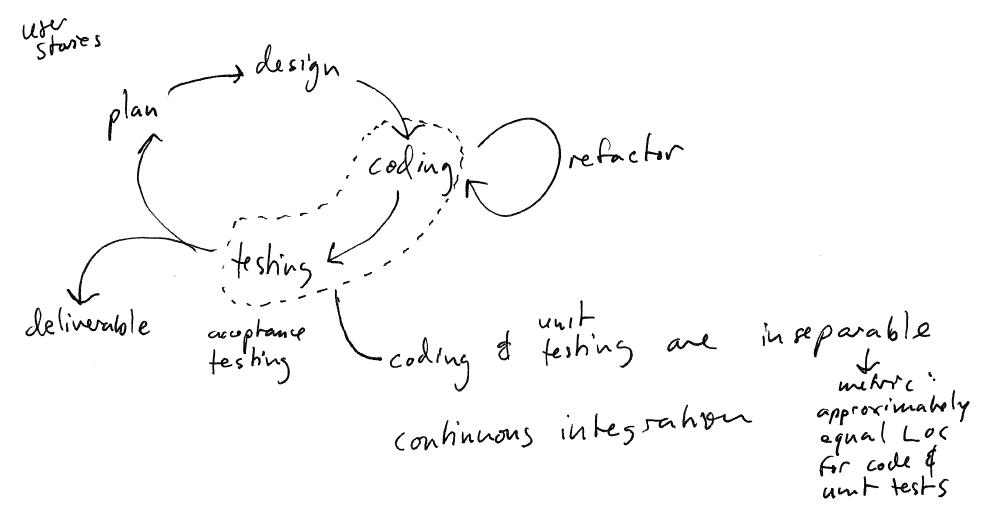 user
stories
design
plan
coding
refactor
testing
deliverable
acceptance
testing
coding & unit testing are inseparable
metric:
approximately
equal LOC
for code &
unit tests
continuous integration